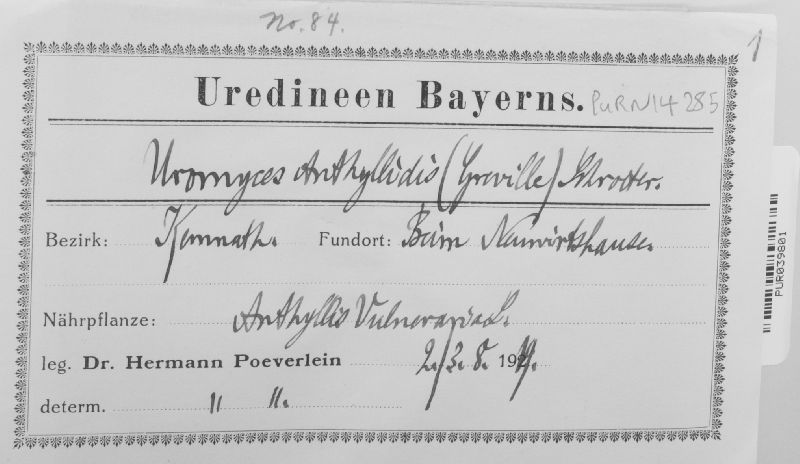 No. 84.
1
Uredineen Bayerns. PURN14285
Uromyces Anthyllidis (Greville) Schroeter.
Bezirk: Kemnath. Fundort: Beim Neuwirtshause.
Nährpflanze: Anthyllis Vulneraria L.
leg. Dr. Hermann Poeverlein 2./3. 8. 19
determ. " ".
PUR039801